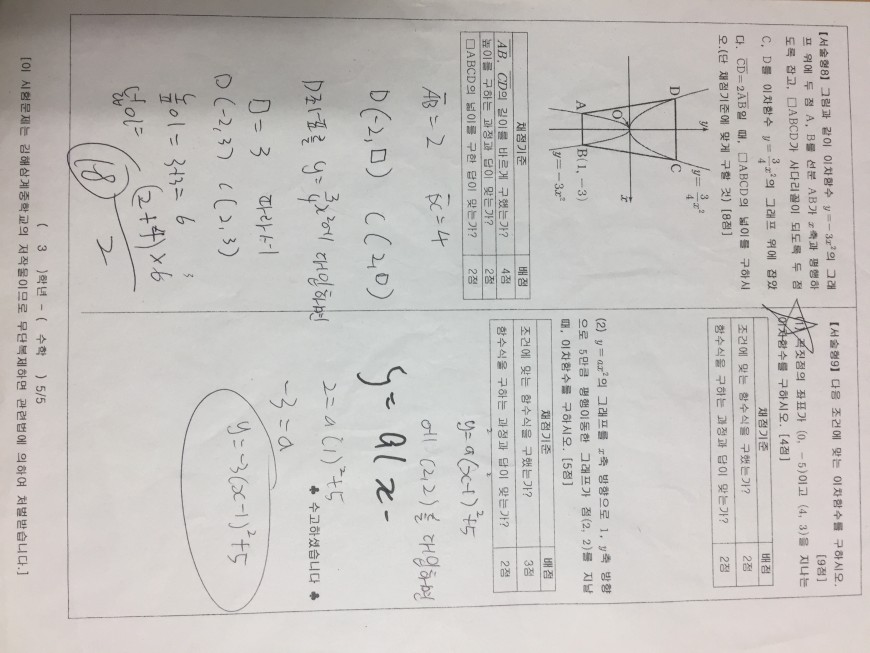 [서술형8] 그림과 같이 이차함수 y=-3x²의 그래
프 위에 두 점 A, B를 선분 AB가 x축과 평행하
도록 잡고, □ABCD가 사다리꼴이 되도록 두 점
C, D를 이차함수 y=3/4x²의 그래프 위에 잡았
다. CD=2AB일 때, □ABCD의 넓이를 구하시
오.(단 채점기준에 맞게 구할 것) [8점]
y
y=3/4x²
D
C
O
x
A
B(1, -3)
y=-3x²
채점기준 배점
AB, CD의 길이를 바르게 구했는가? 4점
높이를 구하는 과정과 답이 맞는가? 2점
□ABCD의 넓이를 구한 답이 맞는가? 2점
AB=2 DC=4
D(-2,□) C(2,□)
D좌표를 y=3/4x²에 대입하면
□=3 따라서
D(-2,3) C(2,3)
높이=3+3=6
넓이= (2+4)×6
2
18
[서술형9] 다음 조건에 맞는 이차함수를 구하시오.
[9점]
(1) 꼭짓점의 좌표가 (0, -5)이고 (4, 3)을 지나는
이차함수를 구하시오. [4점]
채점기준 배점
조건에 맞는 함수식을 구했는가? 2점
함수식을 구하는 과정과 답이 맞는가? 2점
(2) y=ax²의 그래프를 x축 방향으로 1, y축 방향
으로 5만큼 평행이동한 그래프가 점(2, 2)를 지날
때, 이차함수를 구하시오. [5점]
채점기준 배점
조건에 맞는 함수식을 구했는가? 3점
함수식을 구하는 과정과 답이 맞는가? 2점
y=a(x-1)²+5
에 (2,2)를 대입하면
y=a(x-
2=a(1)²+5
♣ 수고하셨습니다 ♣
-3=a
y=-3(x-1)²+5
( 3 )학년 - ( 수학 ) 5/5
[이 시험문제는 김해삼계중학교의 저작물이므로 무단복제하면 관련법에 의하여 처벌받습니다.]